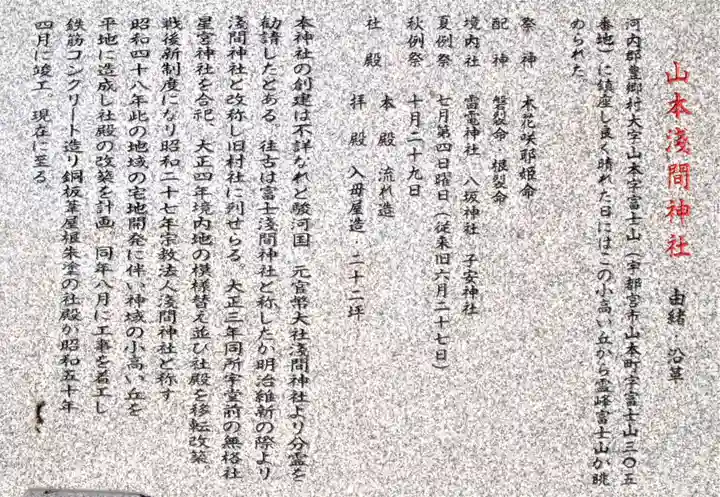 山本淺間神社　由緒　沿革
河内郡豊郷村大字山本字富士山（宇都宮市山本町字富士山三〇五
番地）に鎮座し良く晴れた日にはこの小高い丘から霊峰富士山が眺
められた。
祭神　木花咲耶姫命
配神　磐裂命　根裂命
境内社　雷電神社　八坂神社　子安神社
夏例祭　七月第四日曜日（従来旧六月二十七日）
秋例祭　十月二十九日
社殿　本殿　流れ造
拝殿　入母屋造・二十二坪
本神社の創建は不詳なれど駿河国　元官幣大社淺間神社より分霊を
勧請したとある。往古は富士淺間神社と称したか明治維新の際より
淺間神社と改称し旧村社に列せらる。大正三年同所字堂前の無格社
星宮神社を合祀　大正四年境内地の模様替え並び社殿を移転改築
戦後新制度になり昭和二十七年宗教法人淺間神社と称す
昭和四十八年此の地域の宅地開発に伴い神域の小高い丘を
平地に造成し社殿の改築を計画　同年八月に工事を着工し
鉄筋コンクリート造り銅板葺屋根朱塗の社殿が昭和五十年
四月に竣工。現在に至る。